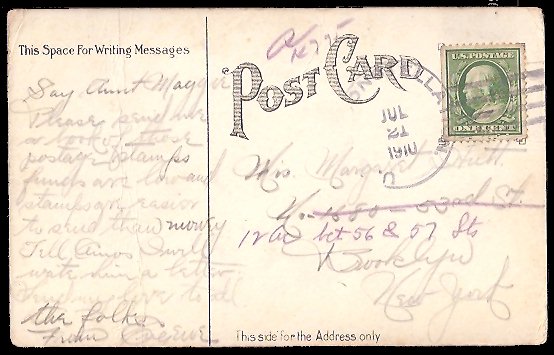 This Space For Writing Messages
POST CARD
U.S. POSTAGE
ONE CENT
JUL
21
1910
Say Aunt Maggie
Please send me
a book of those
postage stamps
funds are low and
stamps are easier
to send than money
Tell Amos I will
write him a letter
love to all
the folks
From
Mrs. Margaret
1680 - 53rd St.
12 Av bet 56 & 57 Sts
Brooklyn
New York
This side for the Address only